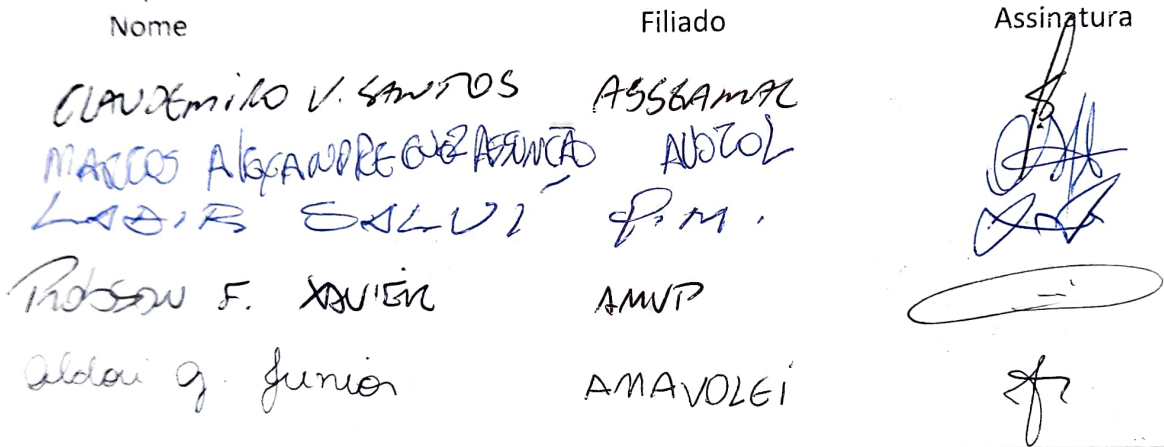 Nome Filiado Assinatura
CLAUDEMIRO V. SANTOS ASSEAMAL
MARCOS ALEXANDRE ASSUNÇÃO
LADIR SALVI P.M.
ROBSON F. XAVIER AMVP
Aldori G. Junior AMAVOLEI